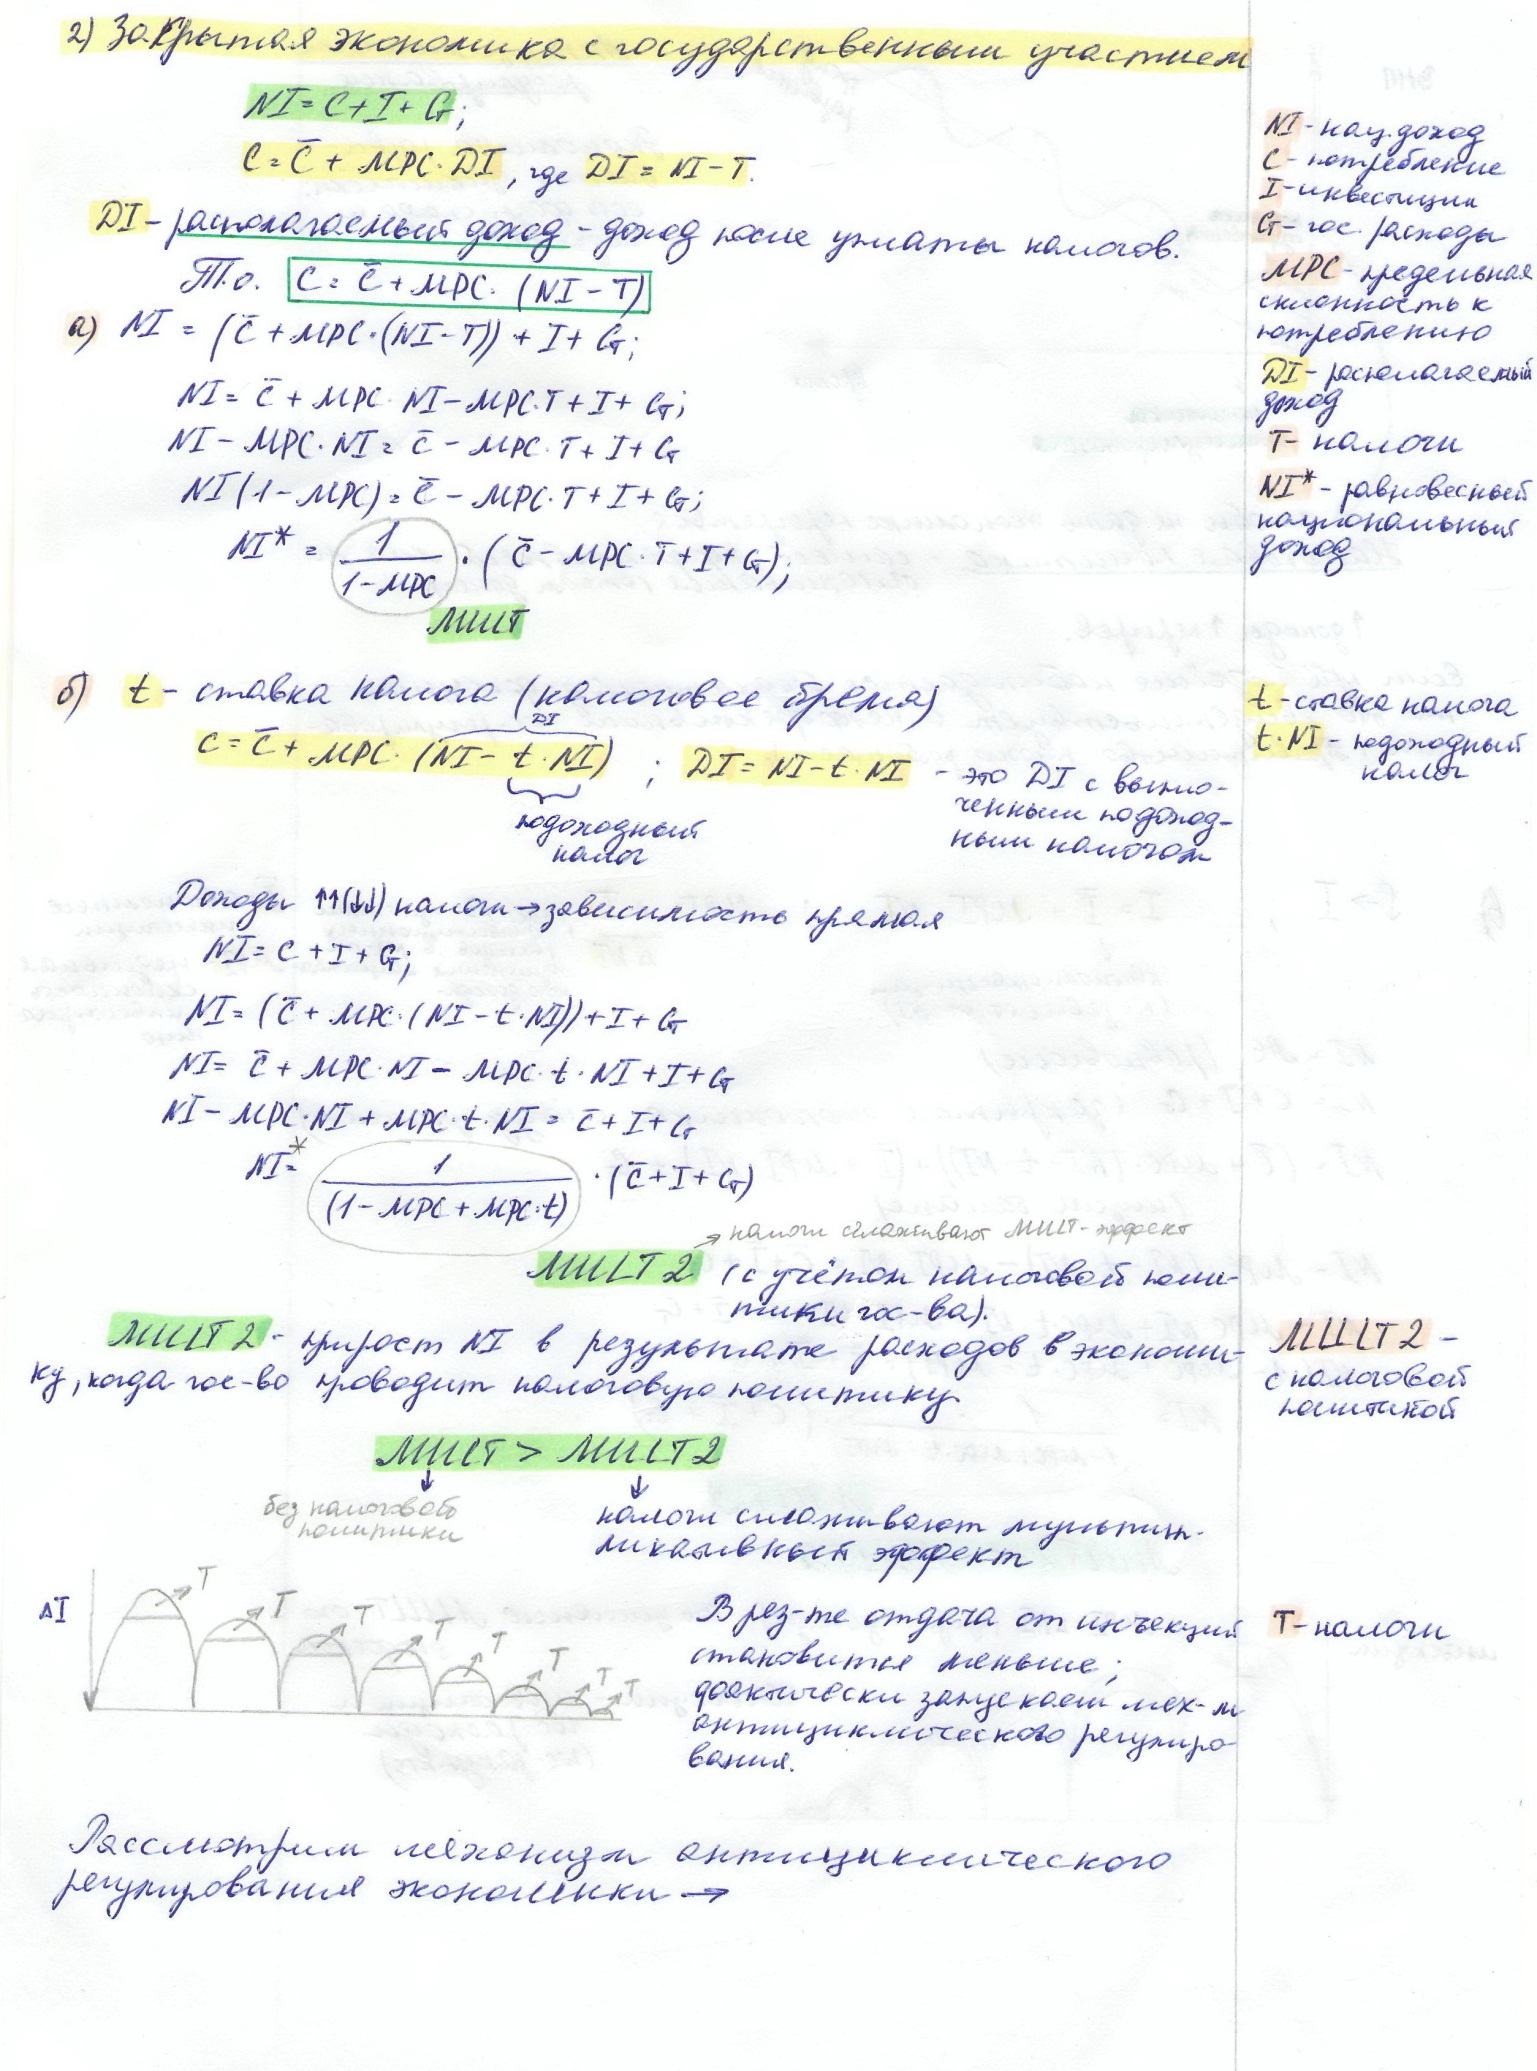 2) Закрытая экономика с государственным участием
NI = C + I + G;
C = C̄ + MPC · DI, где DI = NI − T.
DI – располагаемый доход – доход после уплаты налогов.
Т.о. C = C̄ + MPC · (NI − T)
а) NI = (C̄ + MPC · (NI − T)) + I + G;
NI = C̄ + MPC · NI − MPC · T + I + G;
NI − MPC · NI = C̄ − MPC · T + I + G
NI (1 − MPC) = C̄ − MPC · T + I + G;
NI* = 1/(1 − MPC) · (C̄ − MPC · T + I + G);
MULT
б) t – ставка налога (налоговое бремя)
DI
C = C̄ + MPC · (NI − t · NI) ; DI = NI − t · NI – это DI с выпла-
ченным подоход-
ным налогом
подоходный
налог
Доходы ↑↑(↓↓) налоги → зависимость прямая
NI = C + I + G;
NI = (C̄ + MPC · (NI − t · NI)) + I + G
NI = C̄ + MPC · NI − MPC · t · NI + I + G
NI − MPC · NI + MPC · t · NI = C̄ + I + G
NI* = 1/(1 − MPC + MPC · t) · (C̄ + I + G)
→ налоги сглаживают MULT-эффект
MULT 2 (с учётом налоговой поли-
тики гос-ва).
MULT 2 – прирост NI в результате расходов в экономи-
ку, когда гос-во проводит налоговую политику
MULT > MULT 2
↓ ↓
без налоговой
политики
налоги сглаживают мультип-
ликативный эффект
ΔI
T T T T T T T T
В рез-те отдача от инъекций
становится меньше;
фактически запускаем мех-м
антициклического регулиро-
вания.
Рассмотрим механизм антициклического
регулирования экономики →
NI – нац. доход
C – потребление
I – инвестиции
G – гос. расходы
MPC – предельная
склонность к
потреблению
DI – располагаемый
доход
T – налоги
NI* – равновесный
национальный
доход
t – ставка налога
t · NI – подоходный
налог
MULT 2 –
с налоговой
политикой
T – налоги